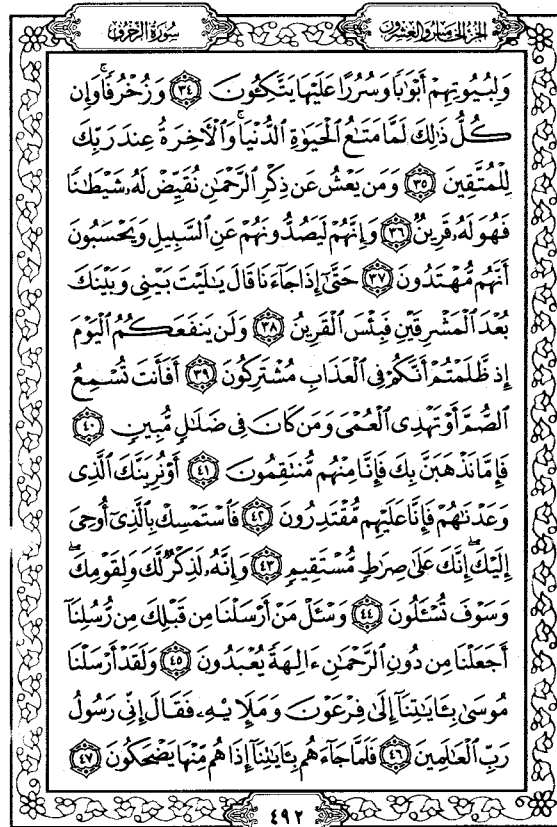 سورة الزخرف
الجزء الخامس والعشرون
وَلِبُيُوتِهِمْ أَبْوَٰبًا وَسُرُرًا عَلَيْهَا يَتَّكِـُٔونَ ٣٤ وَزُخْرُفًا ۚ وَإِن
كُلُّ ذَٰلِكَ لَمَّا مَتَـٰعُ ٱلْحَيَوٰةِ ٱلدُّنْيَا ۚ وَٱلْـَٔاخِرَةُ عِندَ رَبِّكَ
لِلْمُتَّقِينَ ٣٥ وَمَن يَعْشُ عَن ذِكْرِ ٱلرَّحْمَـٰنِ نُقَيِّضْ لَهُۥ شَيْطَـٰنًا
فَهُوَ لَهُۥ قَرِينٌ ٣٦ وَإِنَّهُمْ لَيَصُدُّونَهُمْ عَنِ ٱلسَّبِيلِ وَيَحْسَبُونَ
أَنَّهُم مُّهْتَدُونَ ٣٧ حَتَّىٰٓ إِذَا جَآءَنَا قَالَ يَـٰلَيْتَ بَيْنِى وَبَيْنَكَ
بُعْدَ ٱلْمَشْرِقَيْنِ فَبِئْسَ ٱلْقَرِينُ ٣٨ وَلَن يَنفَعَكُمُ ٱلْيَوْمَ
إِذ ظَّلَمْتُمْ أَنَّكُمْ فِى ٱلْعَذَابِ مُشْتَرِكُونَ ٣٩ أَفَأَنتَ تُسْمِعُ
ٱلصُّمَّ أَوْ تَهْدِى ٱلْعُمْىَ وَمَن كَانَ فِى ضَلَـٰلٍ مُّبِينٍ ٤٠
فَإِمَّا نَذْهَبَنَّ بِكَ فَإِنَّا مِنْهُم مُّنتَقِمُونَ ٤١ أَوْ نُرِيَنَّكَ ٱلَّذِى
وَعَدْنَـٰهُمْ فَإِنَّا عَلَيْهِم مُّقْتَدِرُونَ ٤٢ فَٱسْتَمْسِكْ بِٱلَّذِىٓ أُوحِىَ
إِلَيْكَ ۖ إِنَّكَ عَلَىٰ صِرَٰطٍ مُّسْتَقِيمٍ ٤٣ وَإِنَّهُۥ لَذِكْرٌ لَّكَ وَلِقَوْمِكَ ۖ
وَسَوْفَ تُسْـَٔلُونَ ٤٤ وَسْـَٔلْ مَنْ أَرْسَلْنَا مِن قَبْلِكَ مِن رُّسُلِنَآ
أَجَعَلْنَا مِن دُونِ ٱلرَّحْمَـٰنِ ءَالِهَةً يُعْبَدُونَ ٤٥ وَلَقَدْ أَرْسَلْنَا
مُوسَىٰ بِـَٔايَـٰتِنَآ إِلَىٰ فِرْعَوْنَ وَمَلَإِي۟هِۦ فَقَالَ إِنِّى رَسُولُ
رَبِّ ٱلْعَـٰلَمِينَ ٤٦ فَلَمَّا جَآءَهُم بِـَٔايَـٰتِنَآ إِذَا هُم مِّنْهَا يَضْحَكُونَ ٤٧
٤٩٢